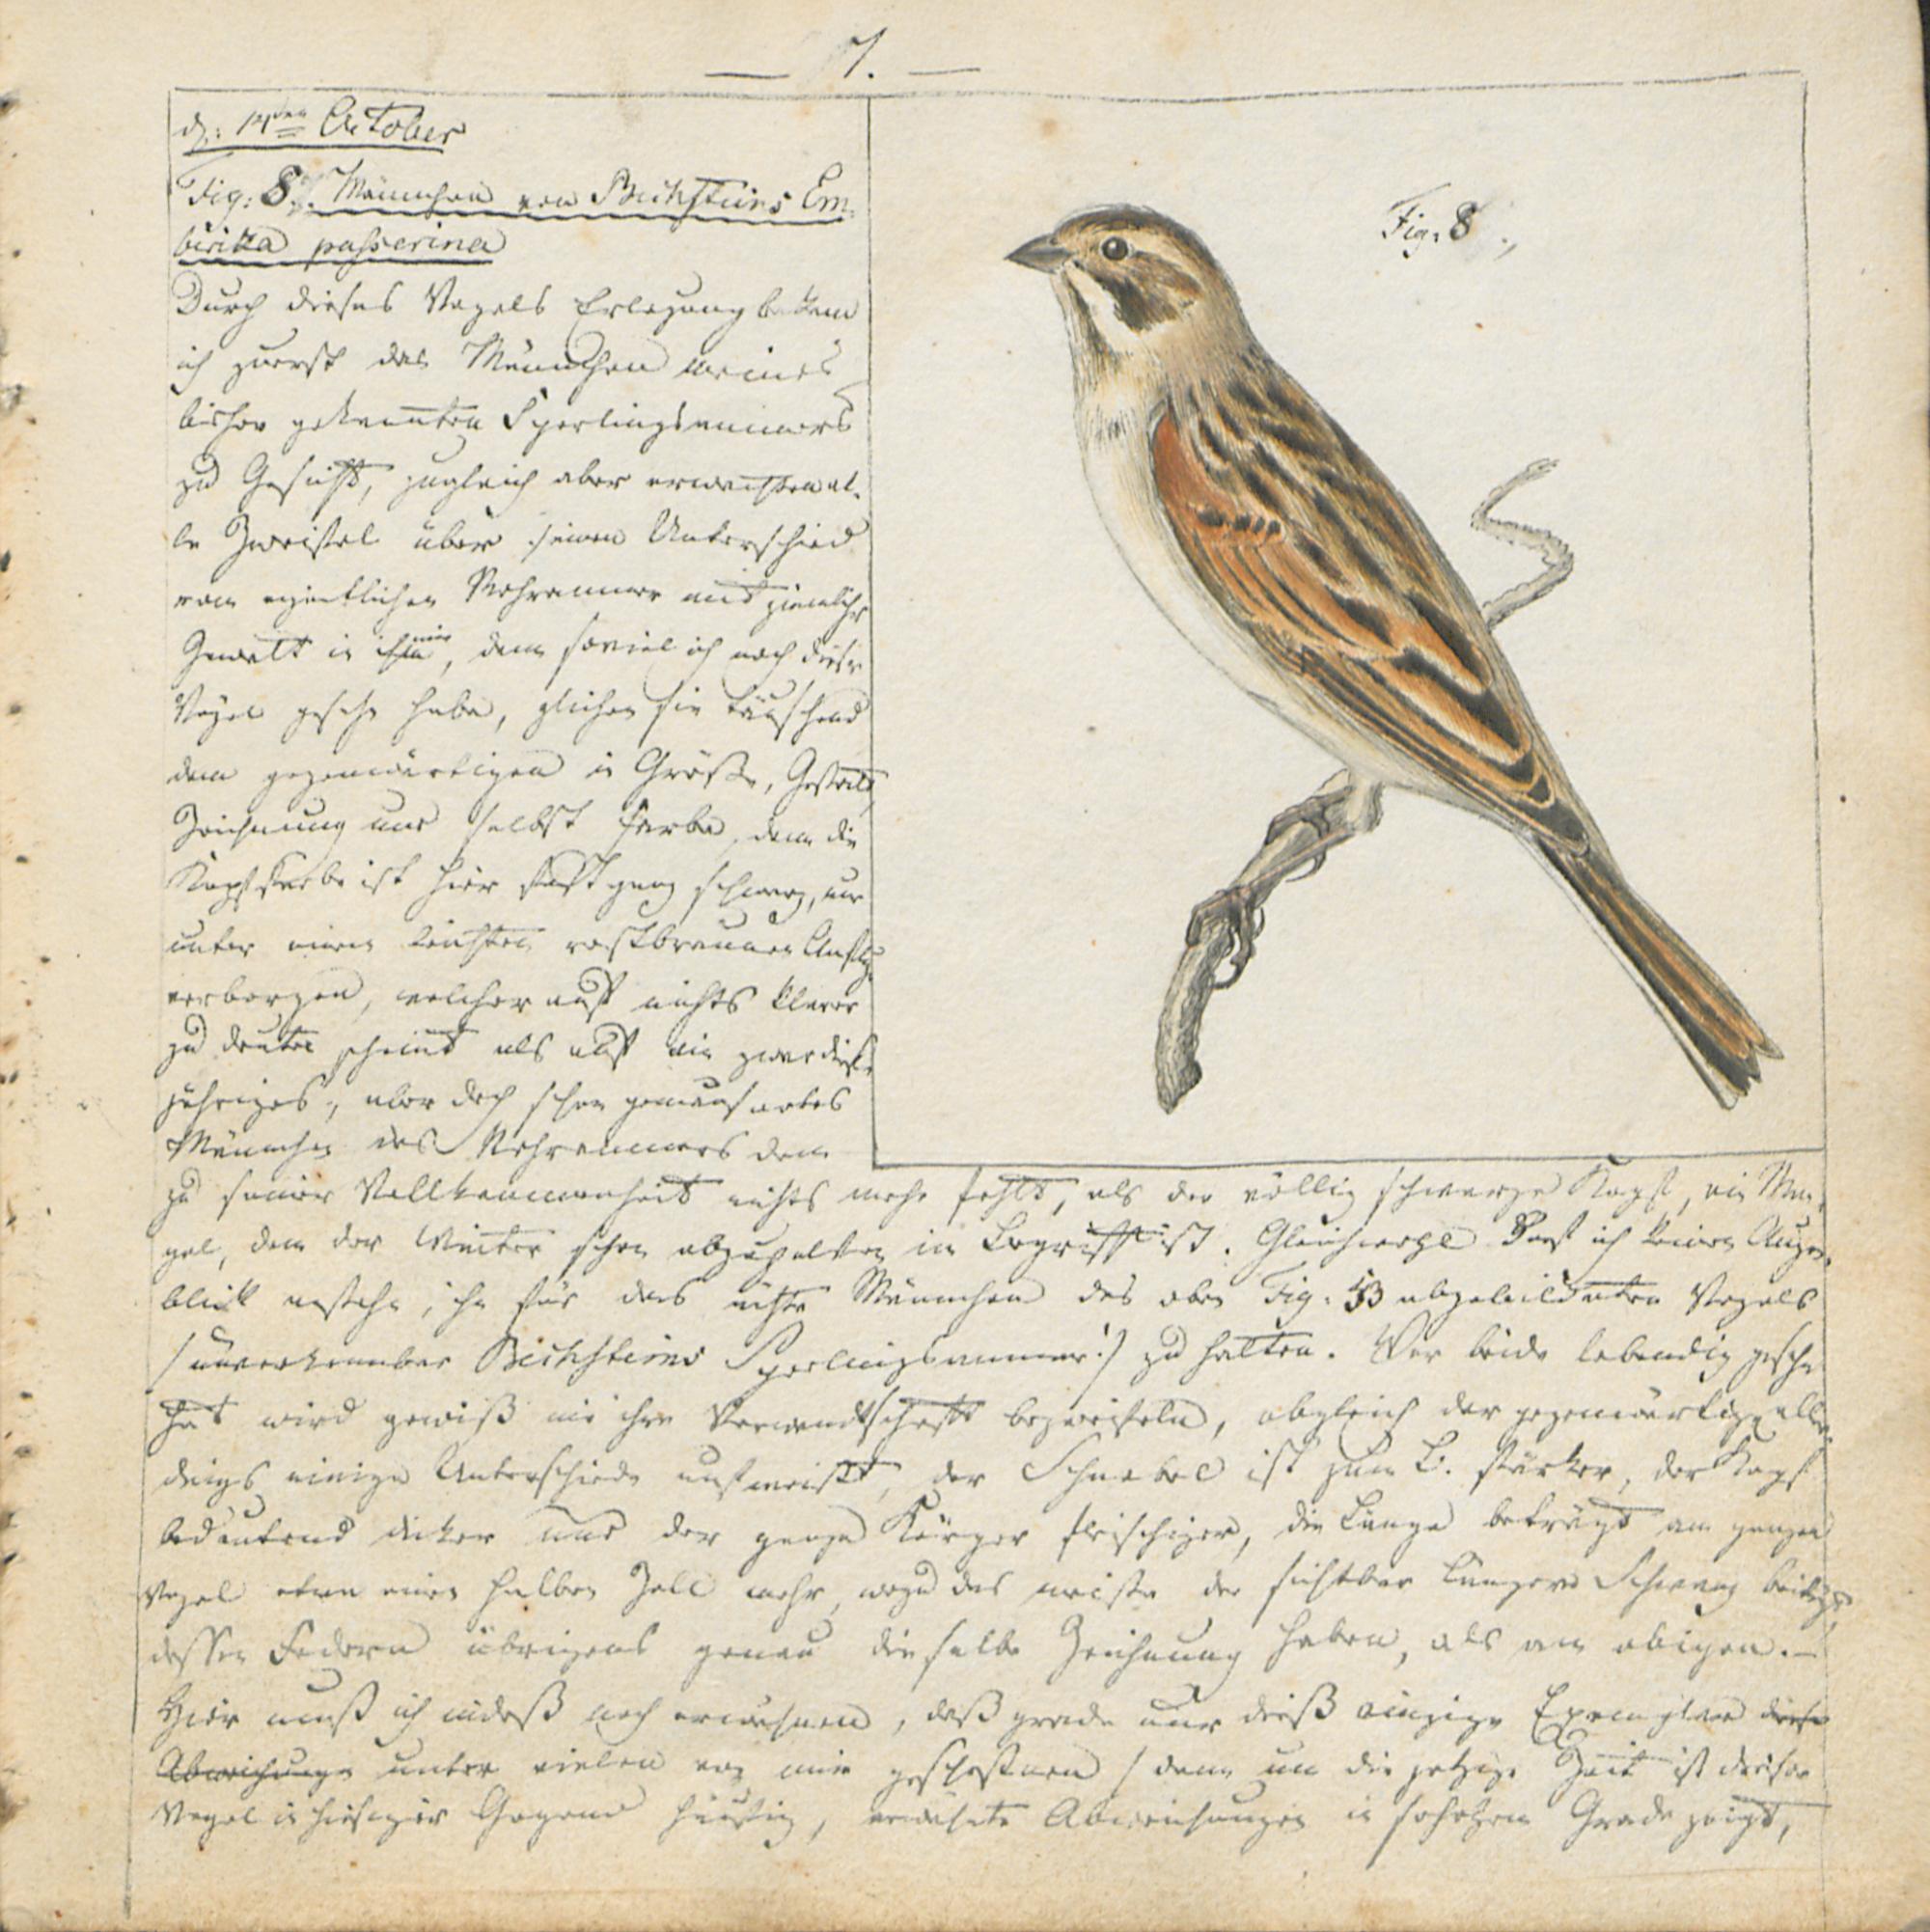 — 7. —
d. 14ten October
Fig: 8. Männchen von Bechsteins Em-
beriza passerina
Durch dieses Vogels Erlegung bekam
ich zuerst das Männchen meines
bisher gekannten Sperlingsammers
zu Gesicht, zugleich aber erwachten al-
le Zweifel über seinen Unterschied
vom eigentlichen Rohrammer mit ziemlicher
Gewalt in mir, denn soviel ich noch dieser
Vögel gesehn habe, glichen sie täuschend
dem gegenwärtigen in Größe, Gestalt,
Zeichnung und selbst Farbe, denn die
Kopffarbe ist hier fast ganz schwarz, nur
unter einem leichten rostbraunen Anflug
verborgen, welcher auf nichts klarer
zu deuten scheint als auf ein zwar dieß-
jähriges, aber doch schon gemausertes
Männchen des Rohrammers dem
zu seiner Vollkommenheit nichts mehr fehlt, als der völlig schwarze Kopf, ein Man-
gel, dem der Winter schon abzuhelfen im Begriff ist. Gleichwohl darf ich keinen Augen-
blick anstehn, ihn für das ächte Männchen des oben Fig: 3 abgebildeten Vogels
(unverkennbar Bechsteins Sperlingsammer!) zu halten. Wer beide lebendig gesehn
hat wird gewiß nie ihre Verwandtschaft bezweifeln, obgleich der gegenwärtige aller-
dings einige Unterschiede aufweist, der Schnabel ist zum B. stärker, der Kopf
bedeutend dicker und der ganze Körper fleischiger, die Länge beträgt am ganzen
Vogel etwa einen halben Zoll mehr, wozu das meiste der sichtbar längere Schwanz beiträgt
dessen Federn übrigens genau dieselbe Zeichnung haben, als am obigen. —
Hier muß ich indeß noch erwähnen, daß grade nur dieß einzige Exemplar diese
Abweichunge unter vielen von mir geschoßnen (denn um die jetzige Zeit ist dieser
Vogel in hiesiger Gegend häufig, erwähnte Abweichungen in so hohem Grade zeigt,
Fig. 8.